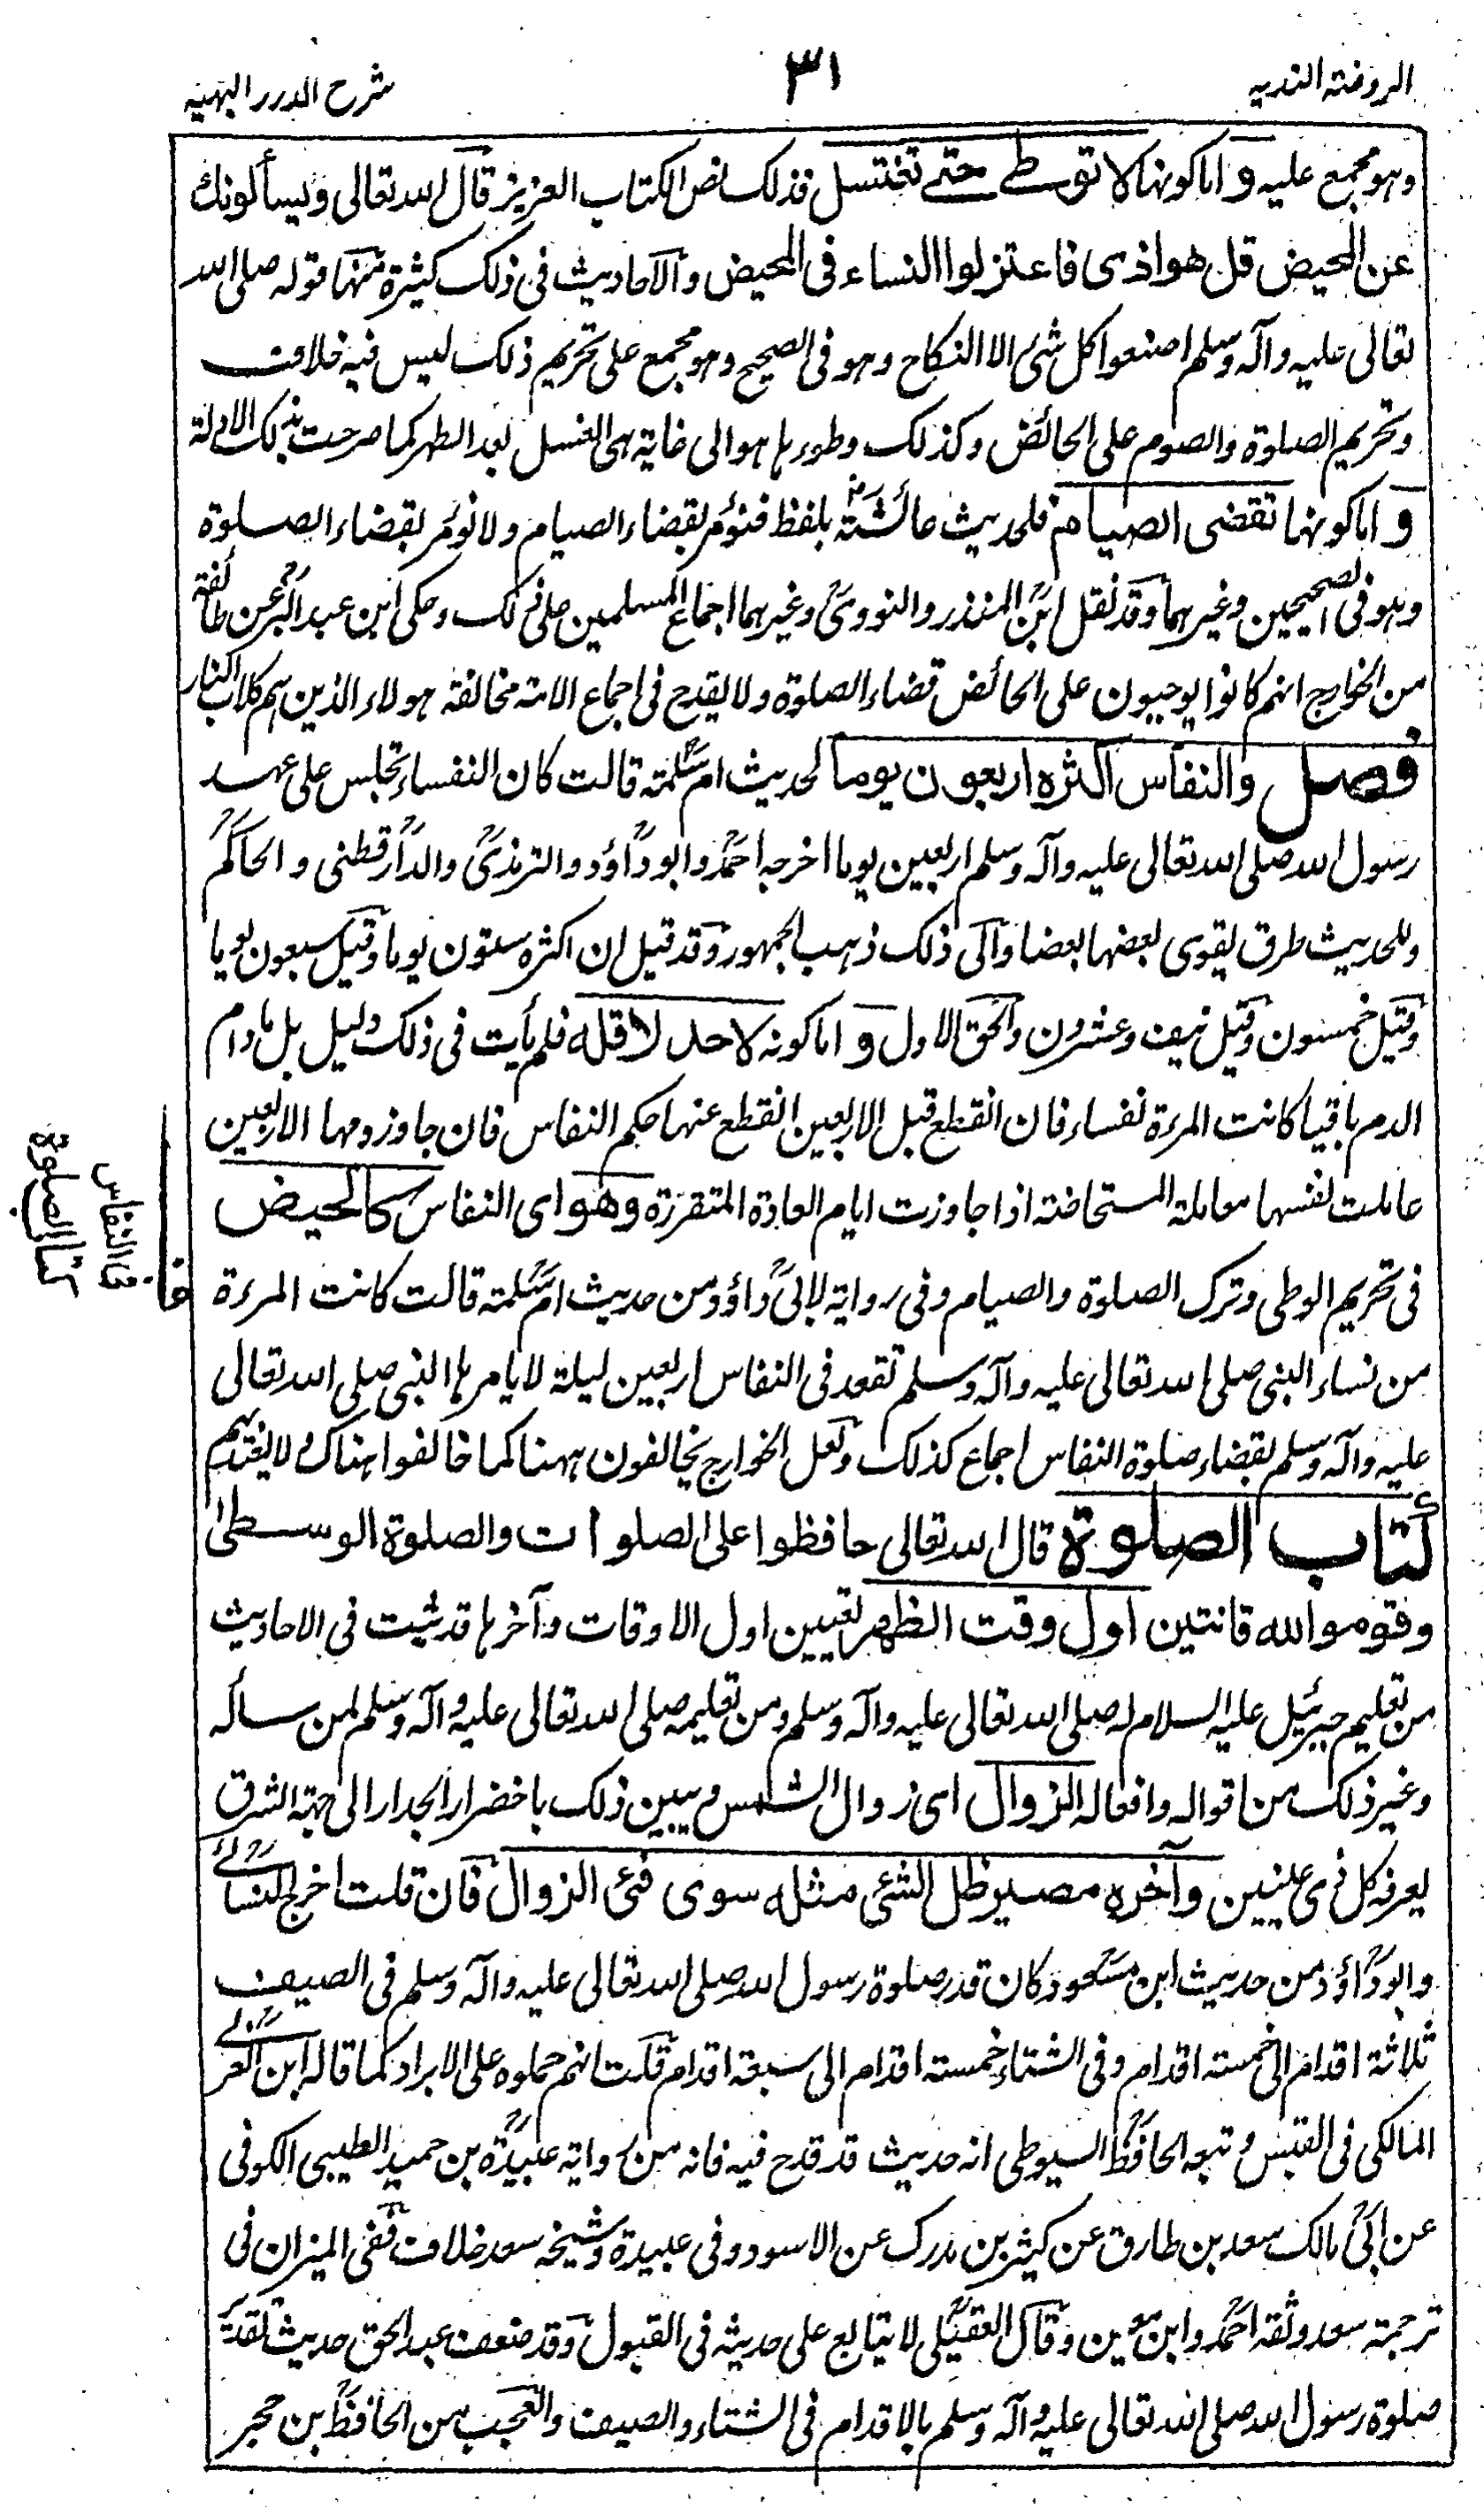 الروضة الندية
٣١
شرح الدرر البهية
وهو مجمع عليه و اما كونها لا توطے حتے تغتسل فذلك نص الكتاب العزيز قال الله تعالى ويسألونك
عن المحيض قل هو اذى فاعتزلوا النساء فى المحيض والاحاديث فى ذلك كثيرة منها قوله صلى الله
تعالى عليه وآله وسلم اصنعوا كل شئ الا النكاح وهو فى الصحيح وهو مجمع على تحريم ذلك ليس فيه خلاف
وتحريم الصلوة والصوم على الحائض وكذلك وطورها هو الى غاية هى الغسل بعد الطهر كما صرحت بذلك الادلة
و اما كونها تقضى الصيام فلحديث عائشة رض بلفظ فنؤمر بقضاء الصيام ولا نؤمر بقضاء الصلوة
وهو فى الصحيحين وغيرهما وقد نقل ابن المنذر والنووى وغيرهما اجماع المسلمين على ذلك وحكى ابن عبد البر عن طائفة
من الخوارج انهم كانوا يوجبون على الحائض قضاء الصلوة ولا يقدح فى اجماع الامة مخالفة هولاء الذين هم كلاب النار
فصل والنفاس اكثره اربعون يوما لحديث ام سلمة قالت كان النفساء تجلس على عهد
رسول الله صلى الله تعالى عليه وآله وسلم اربعين يوما اخرجه احمد وابو داؤد والترمذى والدارقطنى والحاكم
وللحديث طرق يقوى بعضها بعضا والى ذلك ذهب الجمهور وقد قيل ان اكثره ستون يوما وقيل سبعون يوما
وقيل خمسون وقيل نيف وعشرون والحق الاول و اما كونه لا حد لاقله فلم يأت فى ذلك دليل بل ما دام
الدم باقيا كانت المرءة نفساء فان انقطع قبل الاربعين انقطع عنها حكم النفاس فان جاوز دمها الاربعين
عاملت نفسها معاملة المستحاضة اذا جاوزت ايام العادة المتقررة وهو اى النفاس كالحيض
فى تحريم الوطى وترك الصلوة والصيام وفى رواية لابى داؤد من حديث ام سلمة قالت كانت المرءة
من نساء النبى صلى الله تعالى عليه وآله وسلم تقعد فى النفاس اربعين ليلة لا يامرها النبى صلى الله تعالى
عليه وآله وسلم بقضاء صلوة النفاس اجماع كذلك ولعل الخوارج يخالفون ههنا كما خالفوا هناك ولا يعتد بهم
كتاب الصلوة قال الله تعالى حافظوا على الصلوات والصلوة الوسطى
وقوموا لله قانتين اول وقت الظهر تعيين اول الاوقات وآخرها قد ثبت فى الاحاديث
من تعليم جبرئيل عليه السلام له صلى الله تعالى عليه وآله وسلم ومن تعليمه صلى الله تعالى عليه وآله وسلم لمن سأله
وغير ذلك من اقواله وافعاله الزوال اى زوال الشمس ويبين ذلك باخضرار الجدار الى جهة الشرق
يعرفه كل ذى عينين وآخره مصير ظل الشئ مثله سوى فئ الزوال فان قلت اخرج النسائے
وابو داؤد من حديث ابن مسعود كان قدر صلوة رسول الله صلى الله تعالى عليه وآله وسلم فى الصيف
ثلاثة اقدام الى خمسة اقدام وفى الشتاء خمسة اقدام الى سبعة اقدام قلت انهم حملوه على الابراد كما قاله ابن العربے
المالكى فى القبس وتبعه الحافظ السيوطى انه حديث قد قدح فيه فانه من رواية عبيدة بن حميد الطيبى الكوفى
عن ابى مالك سعد بن طارق عن كثير بن مدرك عن الاسود وفى عبيدة وشيخه سعد خلاف ففى الميزان فى
ترجمة سعد وثقه احمد وابن معين وقال العقيلى لا يتابع على حديثه فى القبول وقد ضعف عبد الحق حديث تقدير
صلوة رسول الله صلى الله تعالى عليه وآله وسلم بالاقدام فى الشتاء والصيف والعجب من الحافظ بن حجر
فى النفاس
كتاب الصلوة